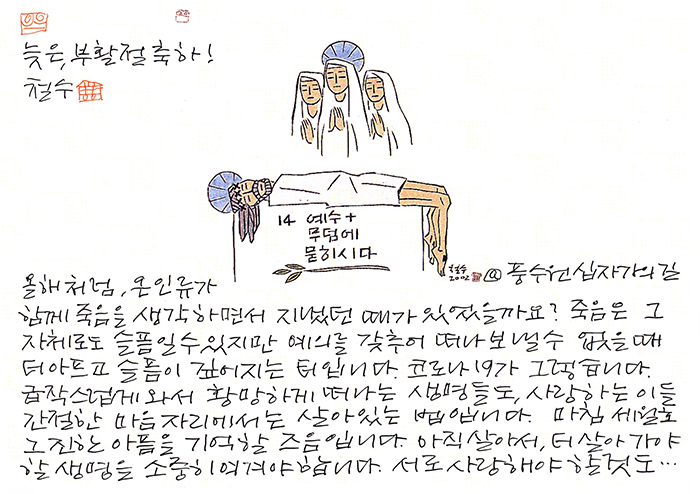 늦은, 부활절 축하!
철수
14 예수+
무덤에
묻히시다
2002
@ 풍수원 십자가의 길
올해처럼, 온 인류가
함께 죽음을 생각하면서 지냈던 때가 있었을까요? 죽음은 그
자체로도 슬픔일 수 있지만 예의를 갖추어 떠나 보낼 수 없을 때
더 아프고 슬픔이 깊어지는 터입니다. 코로나19가 그랬습니다.
급작스럽게 와서 황망하게 떠나는 생명들도, 사랑하는 이들
간절한 마음자리에서는 살아있는 법입니다. 마침 세월호
그 진한 아픔을 기억할 즈음입니다. 아직 살아서, 더 살아가야
할 생명을 소중히 여겨야 합니다. 서로 사랑해야 할 것도…